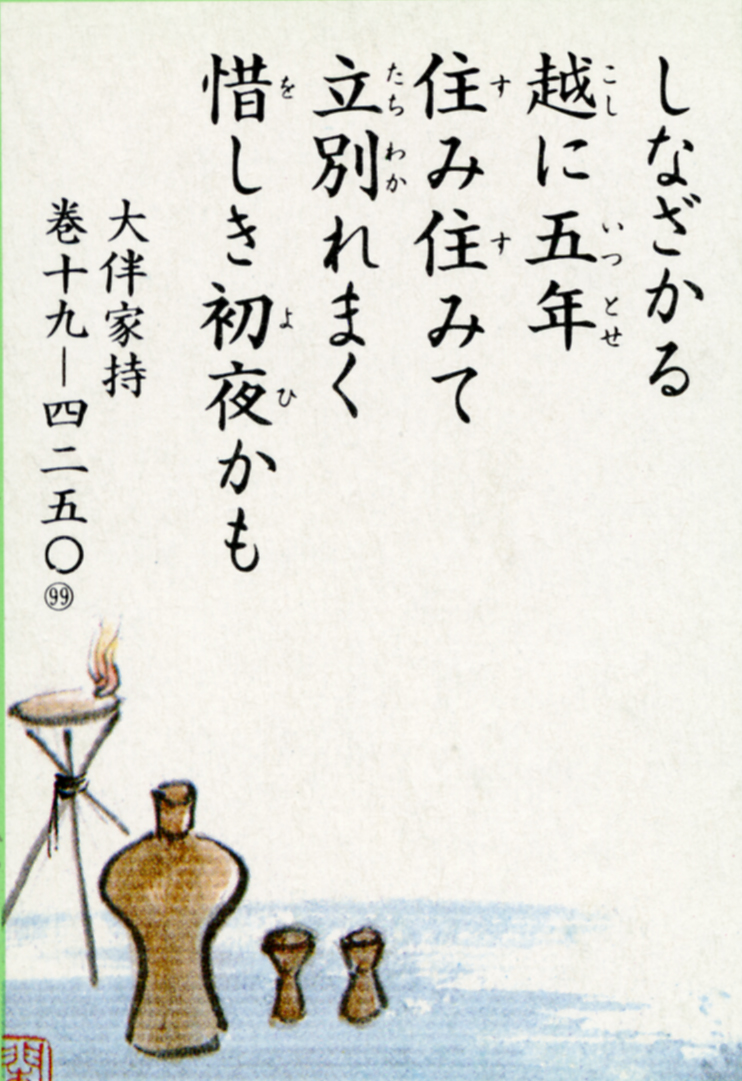 しなざかる
越に五年
こし いつとせ
住み住みて
す す
立別れまく
たちわか
惜しき初夜かも
を よひ
大伴家持
巻十九―四二五〇
99